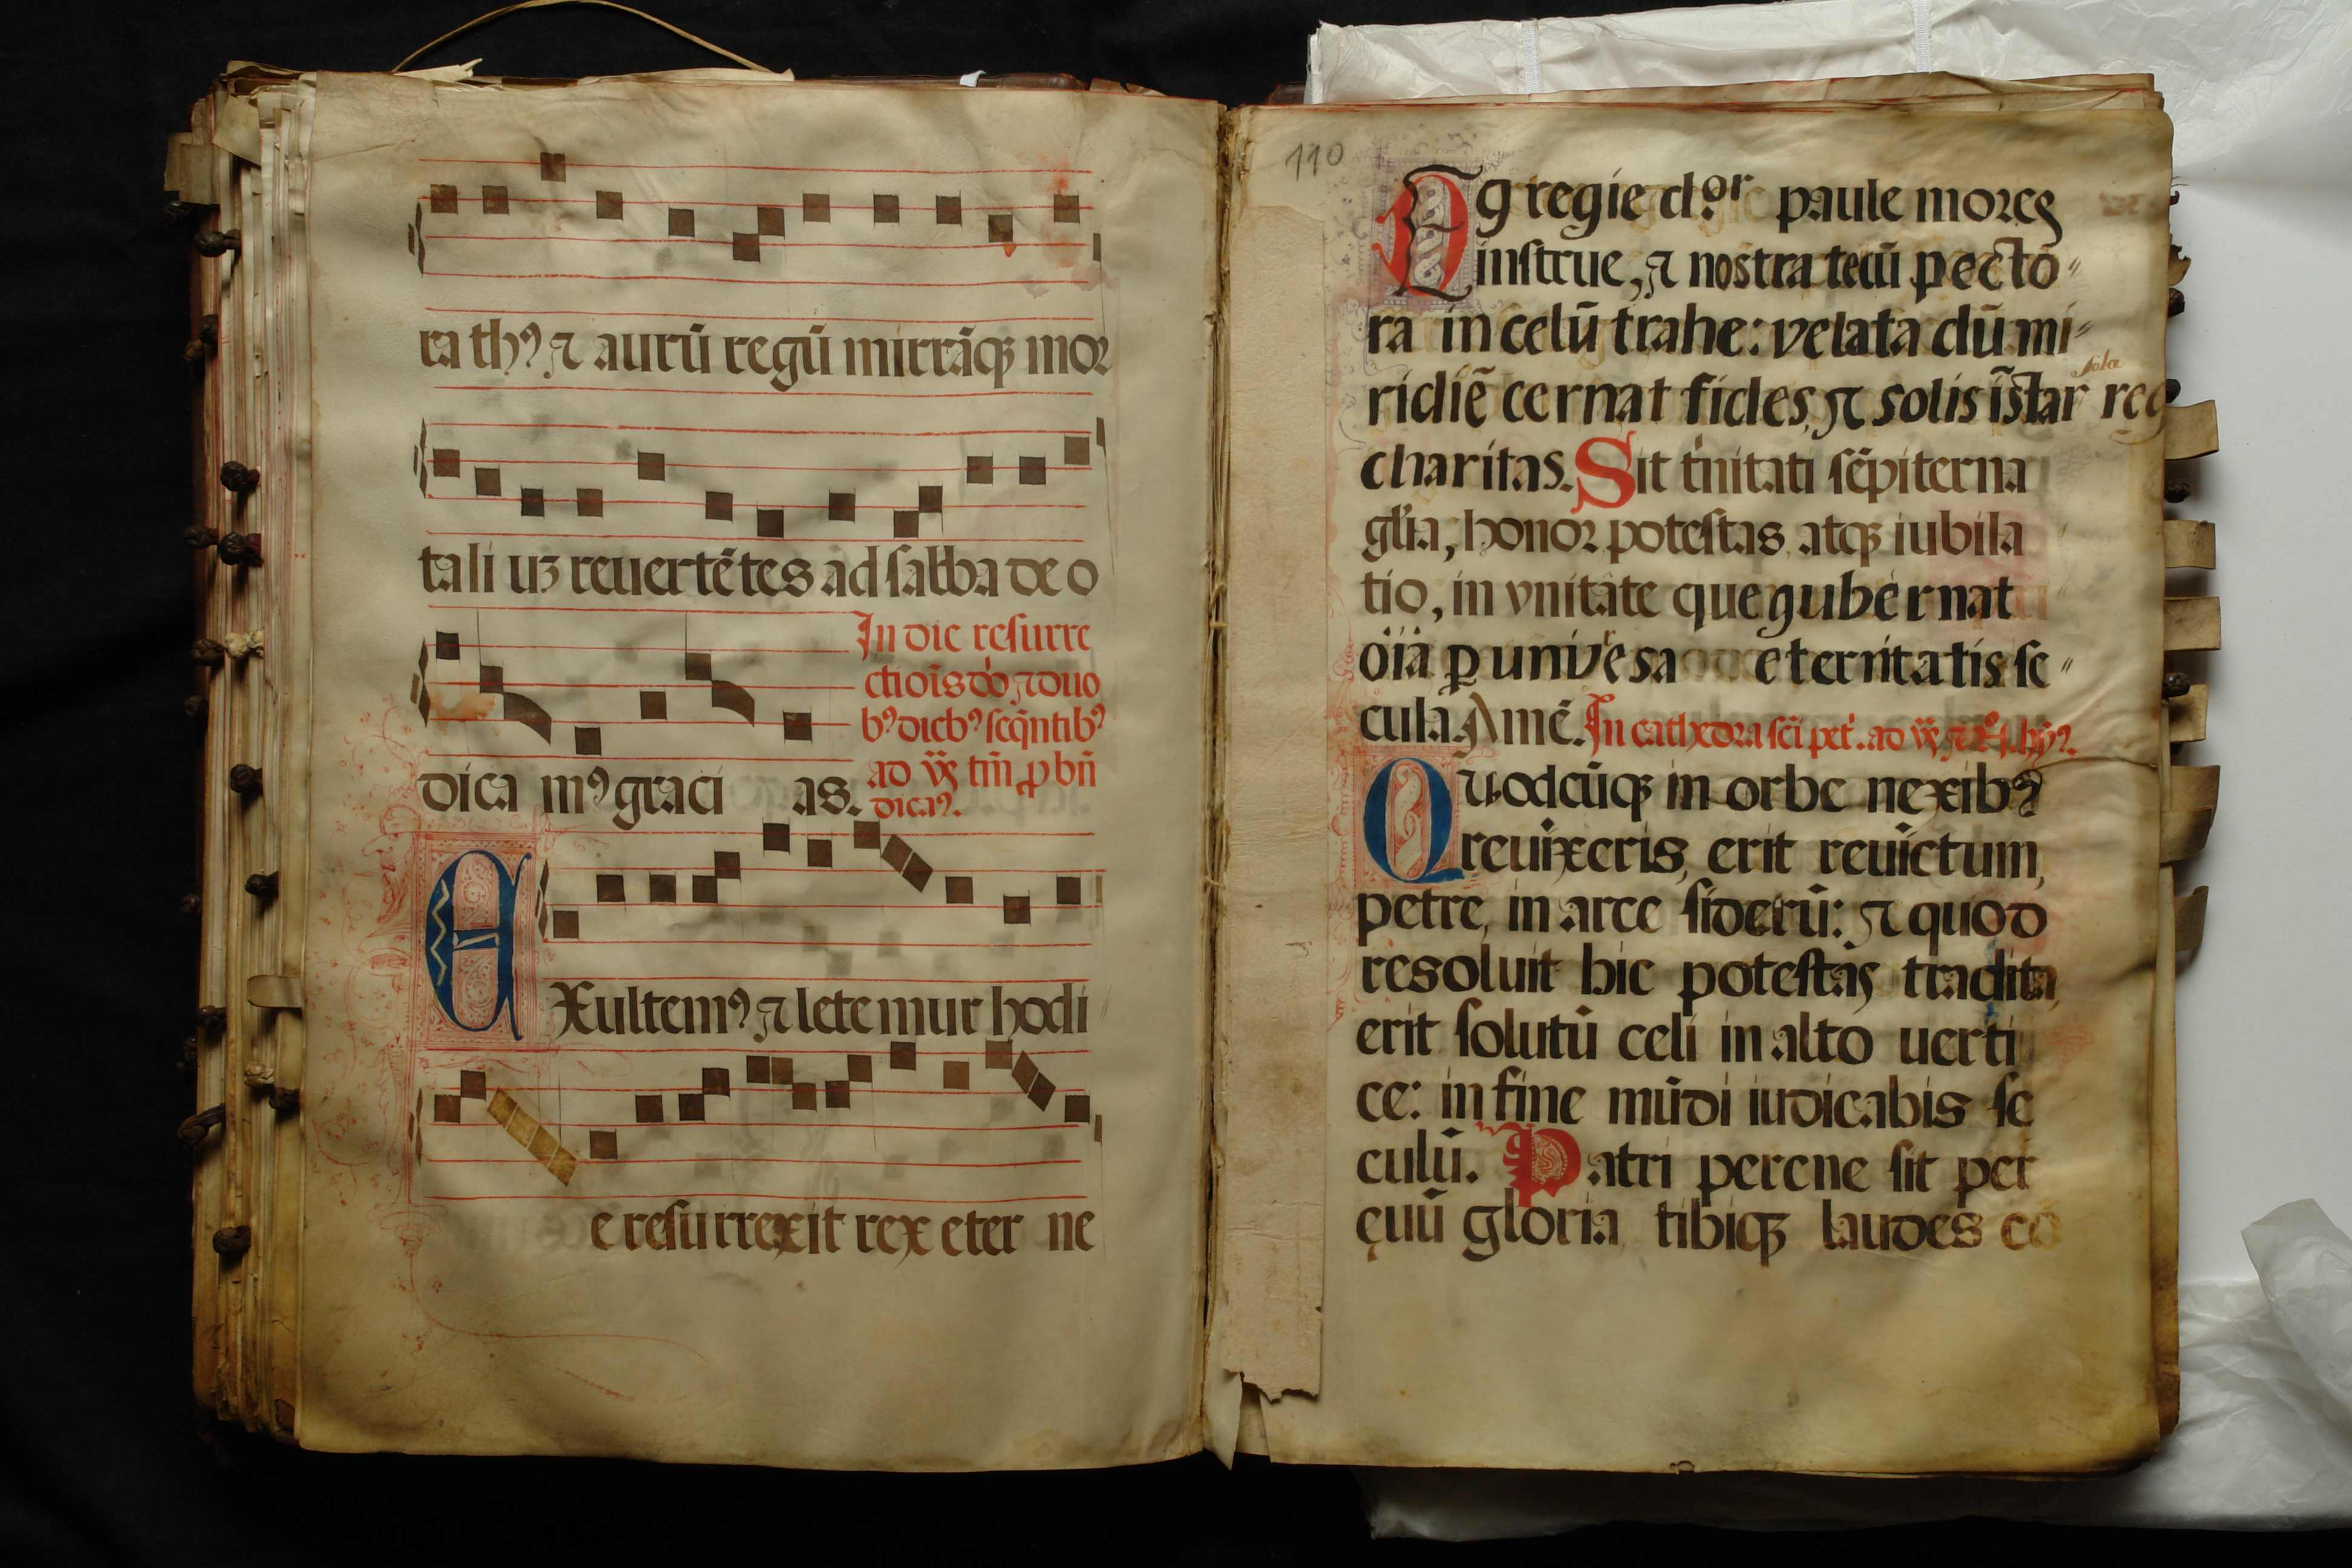 rathꝰ ⁊ aurū regū mirrāqꝫ mor
tali uꝫ reuertētes ad sabba de o
In die resurre
ctiois do ⁊ duo
bꝰ diebꝰ seqntibꝰ
ad tm̄ p bn̄
dica mꝰ graci as.
dicaꝰ.
EXultemꝰ ⁊ letemur hodi
e resurrexit rex eter ne
110
Egregie d.or paule mores
instrue, ⁊ nostra tecū pecto
ra in celū trahe: velata dū mi-
sola
ridiē cernat fides, ⁊ solis īstar reg
charitas. Sit trinitati sēpiterna
glia, honor potestas atqꝫ iubila
tio, in vnitate que gubernat
oīa ꝑ universa eternitatis se
cula. Amē. In cathedra sci pet. ad
Quodcūqꝫ in orbe nexibꝰ
reuixeris, erit reuictum,
petre, in arce siderū: ⁊ quod
resoluit hic potestas tradita,
erit solutū celi in alto uerti
ce: in fine mūdi iudicabis se
culū. Patri perene sit per
ęuū gloria tibiqꝫ laudes cō